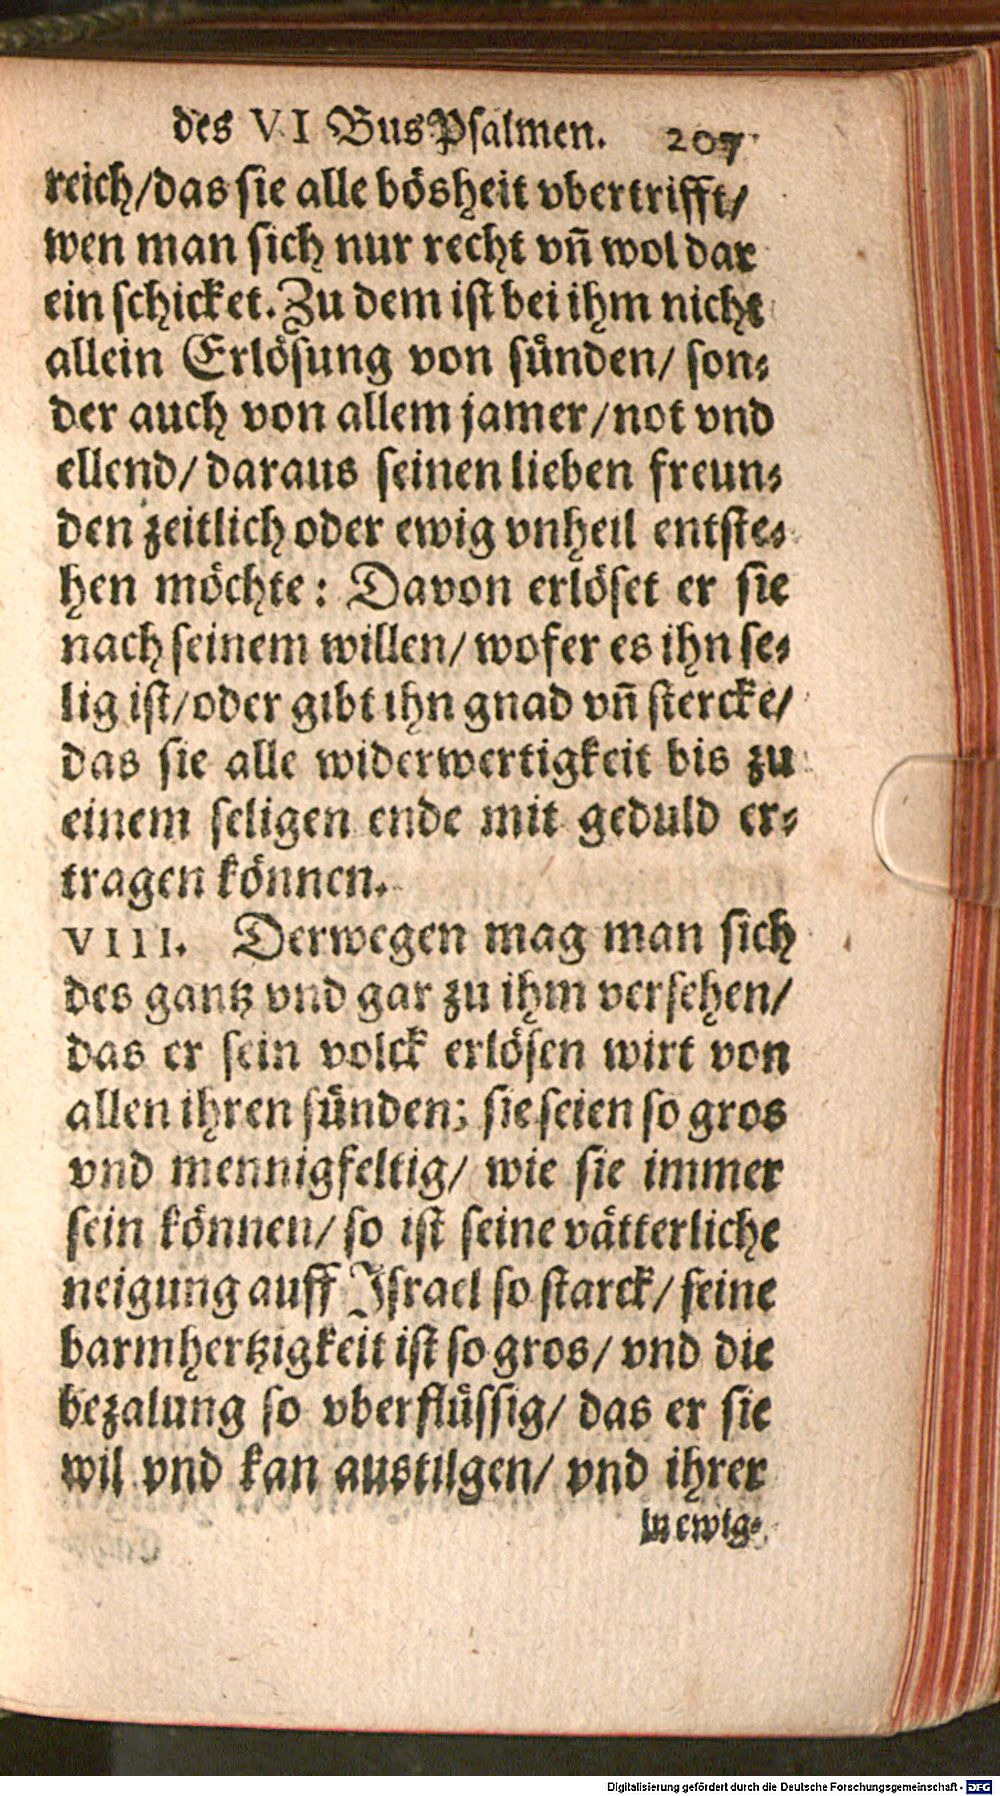 des VI BusPsalmen. 207
reich/das sie alle bösheit vbertrifft/
wen man sich nur recht vñ wol dar
ein schicket. Zu dem ist bei ihm nicht
allein Erlösung von sünden/ son-
der auch von allem jamer/not vnd
ellend/ daraus seinen lieben freun-
den zeitlich oder ewig vnheil entste-
hen möchte: Davon erlöset er sie
nach seinem willen/ wofer es ihn se-
lig ist/oder gibt ihn gnad vñ stercke/
das sie alle widerwertigkeit bis zu
einem seligen ende mit geduld er-
tragen können.
VIII. Derwegen mag man sich
des gantz vnd gar zu ihm versehen/
das er sein volck erlösen wirt von
allen ihren sünden; sie seien so gros
vnd mennigfeltig/ wie sie immer
sein können/ so ist seine vätterliche
neigung auff Israel so starck/ seine
barmhertzigkeit ist so gros/ vnd die
bezalung so vberflüssig/ das er sie
wil vnd kan austilgen/ vnd ihrer
in ewig-
Digitalisierung gefördert durch die Deutsche Forschungsgemeinschaft - DFG